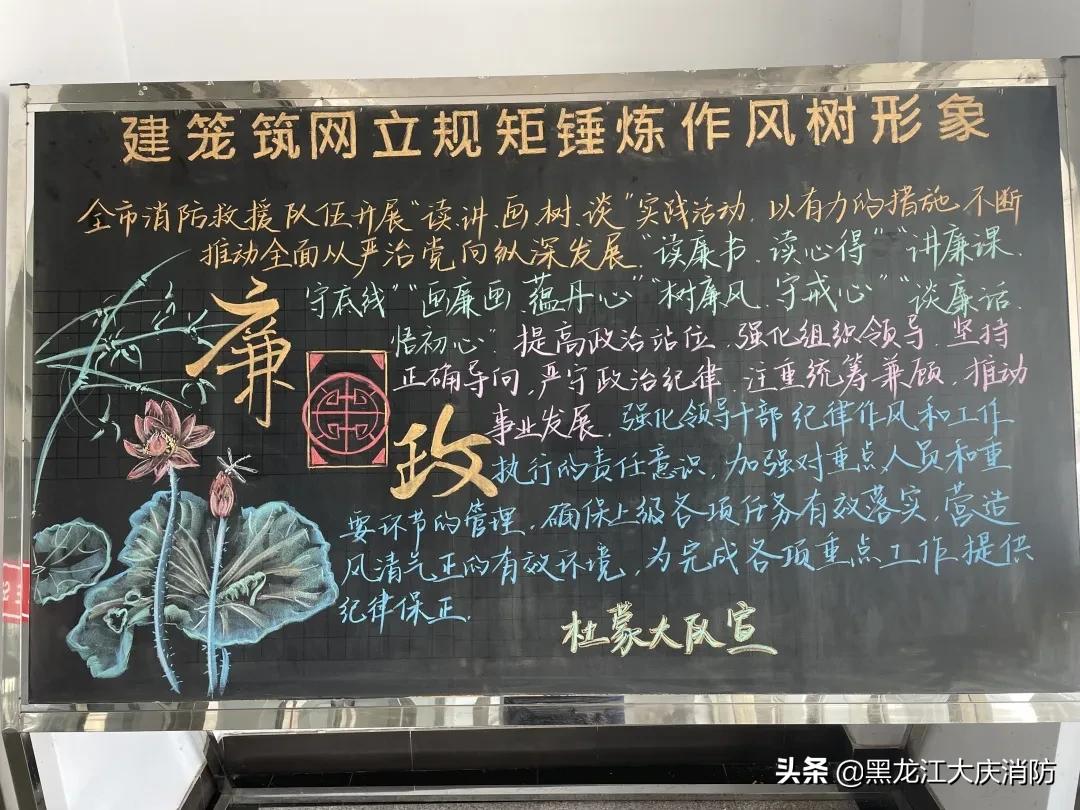 建笼筑网立规矩锤炼作风树形象
全市消防救援队伍开展“读、讲、画、树、谈”实践活动，以有力的措施，不断
推动全面从严治党向纵深发展。“读廉书、读心得”“讲廉课、
守底线”“画廉画、蕴丹心”“树廉风、守戒心”“谈廉话、
悟初心”。提高政治站位，强化组织领导，坚持
正确导向，严守政治纪律，注重统筹兼顾，推动
事业发展，强化领导干部纪律作风和工作
执行的责任意识，加强对重点人员和重
要环节的管理，确保上级各项任务有效落实，营造
风清气正的有效环境，为完成各项重点工作提供
纪律保正.
廉
政
杜蒙大队宣
头条 @黑龙江大庆消防